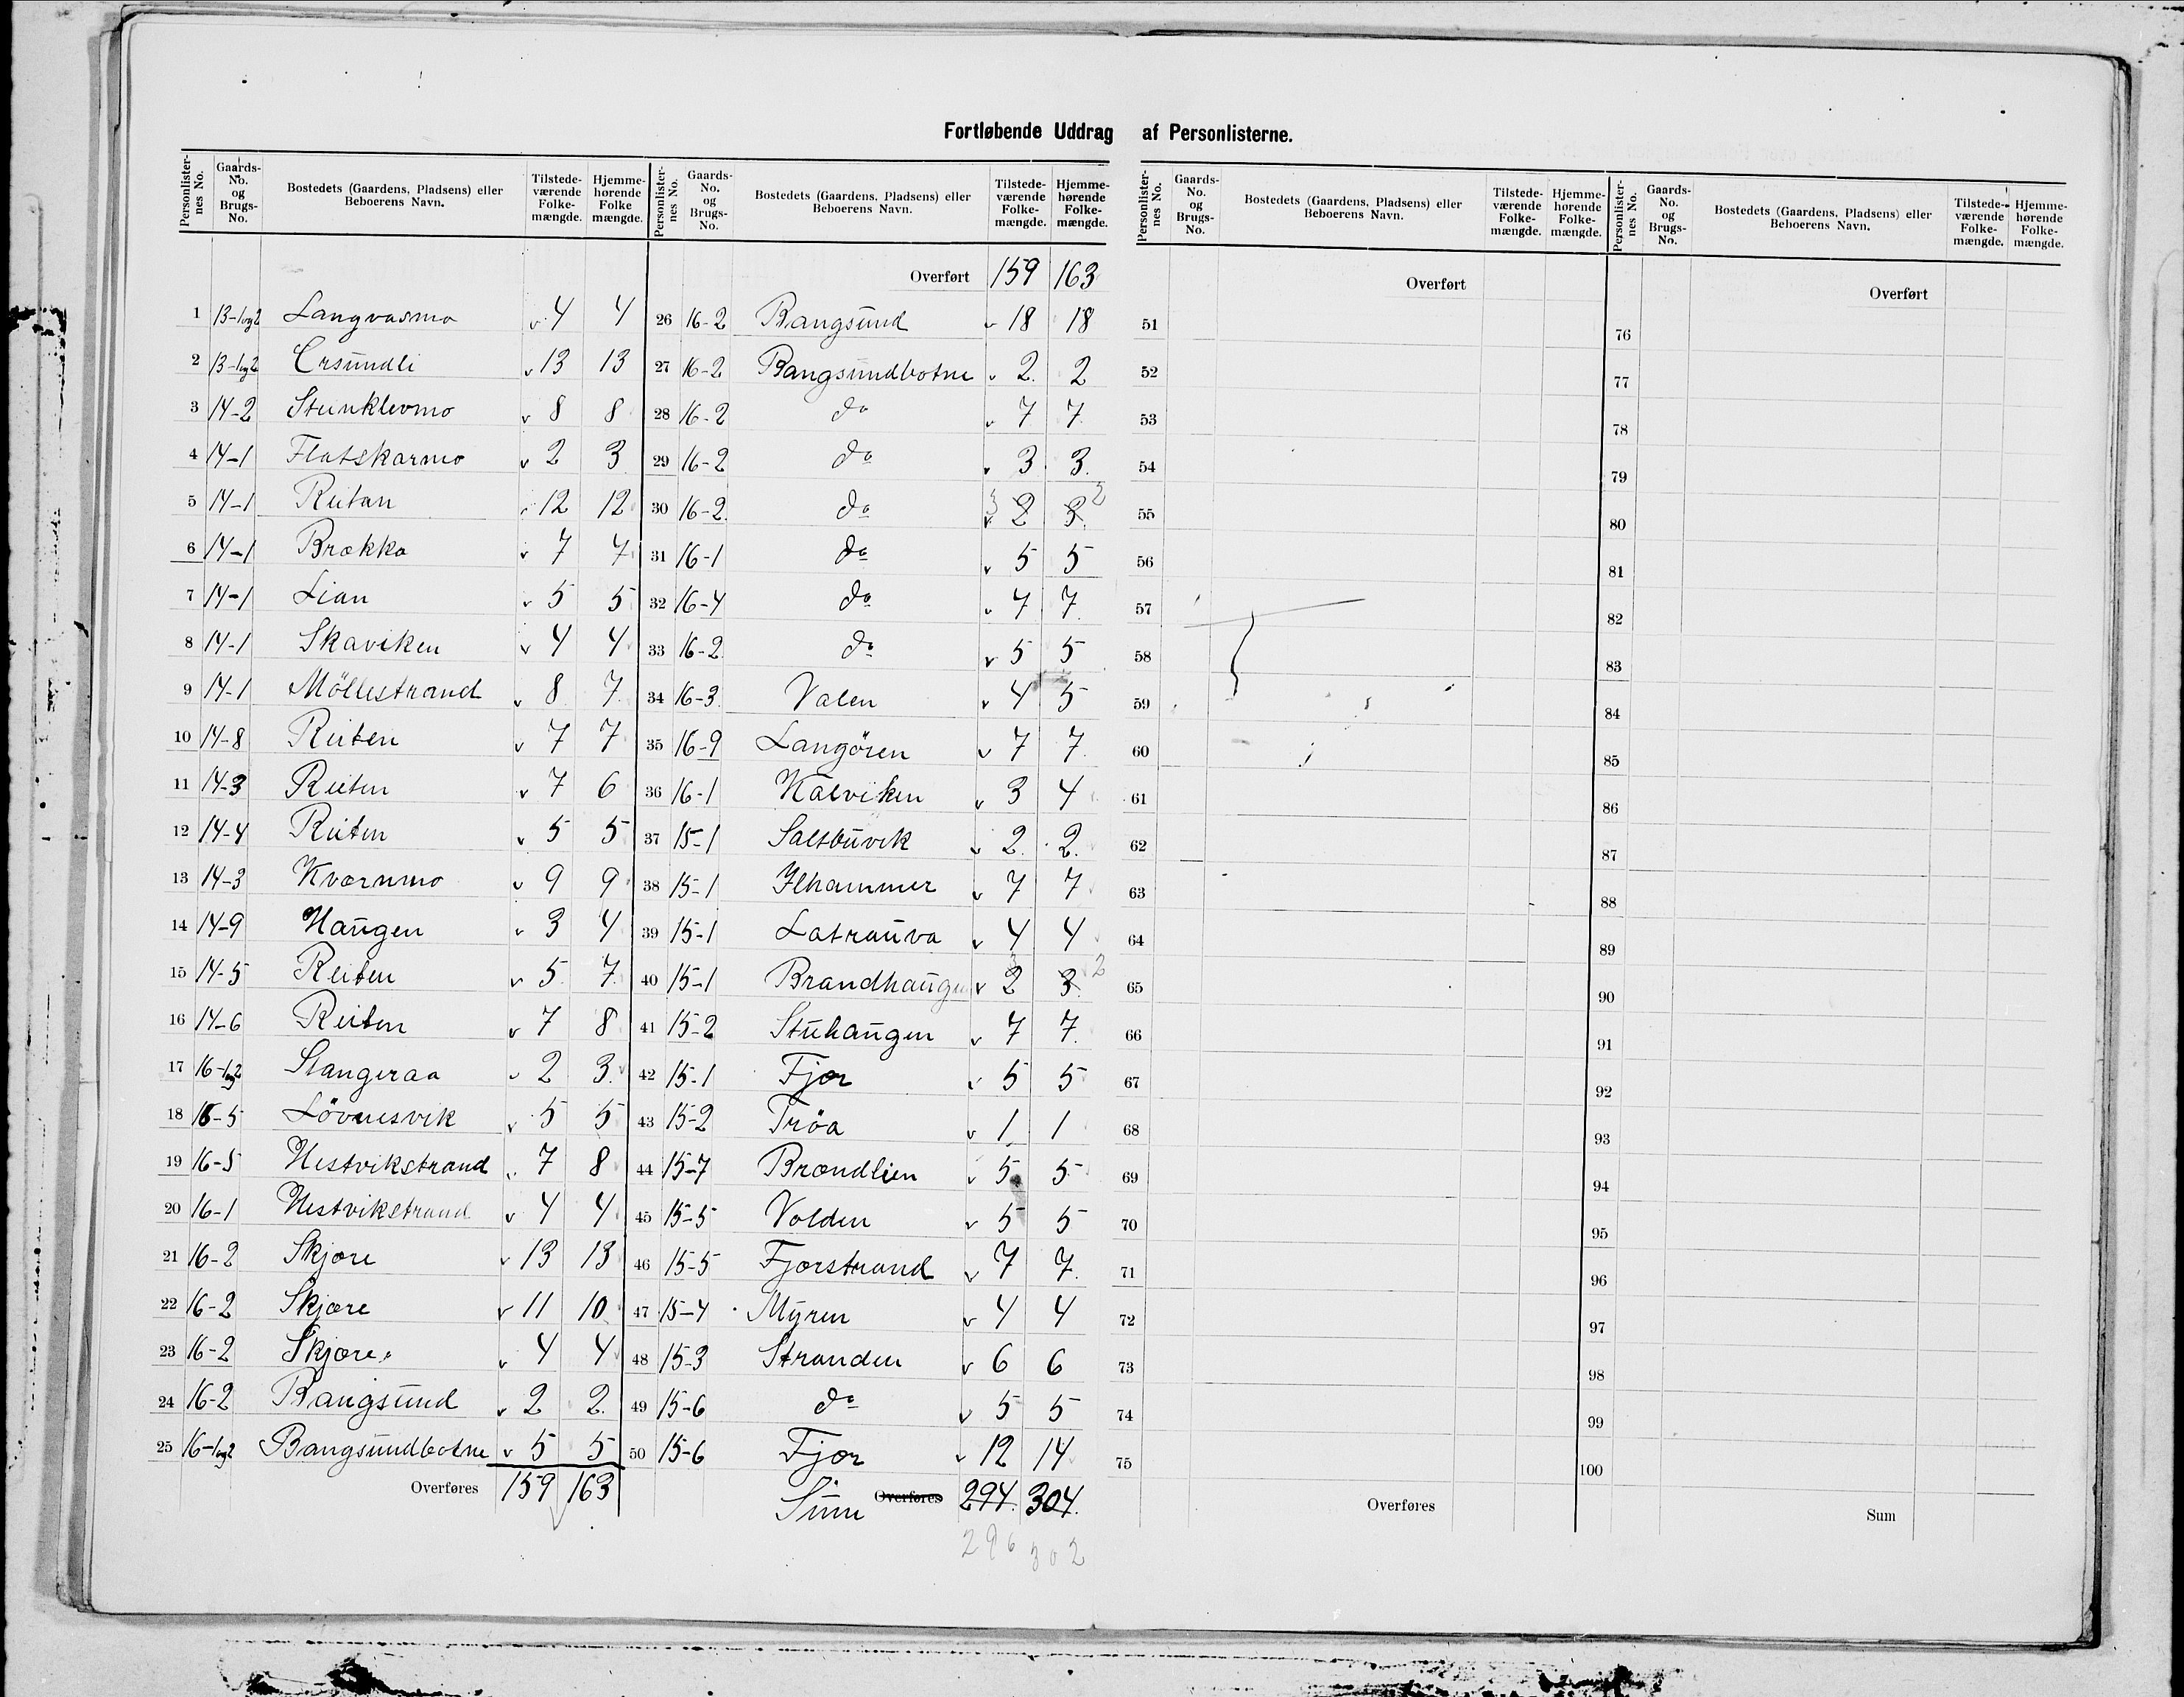 Fortløbende Uddrag af Personlisterne.
Personlister-nes No. | Gaards-No. og Brugs-No. | Bostedets (Gaardens, Pladsens) eller Beboerens Navn. | Tilstede-værende Folke-mængde. | Hjemme-hørende Folke mængde.
1 13-1og2 Langvasmo v 4 4
2 13-1og2 Ersundli v 13 13
3 14-2 Steinklevmo v 8 8
4 14-1 Flatskarmo v 2 3
5 14-1 Reitan v 12 12
6 14-1 Brækka v 7 7
7 14-1 Lian v 5 5
8 14-1 Skaviken v 4 4
9 14-1 Möllestrand v 8 7
10 14-8 Reiten v 7 7
11 14-3 Reiten v 7 6
12 14-4 Reiten v 5 5
13 14-3 Kværnmo v 9 9
14 14-9 Haugen v 3 4
15 14-5 Reiten v 5 7
16 14-6 Reiten v 7 8
17 16-1og2 Slangeraa v 2 3
18 16-5 Lövnesvik v 5 5
19 16-5 Hestvikstrand v 7 8
20 16-1 Hestvikstrand v 4 4
21 16-2 Skjære v 13 13
22 16-2 Skjære v 11 10
23 16-2 Skjære v 4 4
24 16-2 Bangsund v 2 2
25 16-1og2 Bangsundbotne v 5 5
Overføres 159 163
Personlister-nes No. | Gaards-No. og Brugs-No. | Bostedets (Gaardens, Pladsens) eller Beboerens Navn. | Tilstede-værende Folke-mængde. | Hjemme-hørende Folke-mængde.
Overført 159 163
26 16-2 Bangsund v 18 18
27 16-2 Bangsundbotne v 2 2
28 16-2 do v 7 7
29 16-2 do v 3 3
30 16-2 do v 3 2 3 2
31 16-1 do v 5 5
32 16-4 do v 7 7
33 16-2 do v 5 5
34 16-3 Valen v 4 5
35 16-9 Langören v 7 7
36 16-1 Kalviken v 3 4
37 15-1 Saltbuvik v 2 2
38 15-1 Ilhammer v 7 7
39 15-1 Latrauva v 4 4
40 15-1 Brandhaugen v 3 2 3 2
41 15-2 Stuhaugen v 7 7
42 15-1 Fjær v 5 5
43 15-2 Tröa v 1 1
44 15-7 Brændlien v 5 5
45 15-5 Volden v 5 5
46 15-5 Fjærstrand v 7 7
47 15-4 Myren v 4 4
48 15-3 Stranden v 6 6
49 15-6 do v 5 5
50 15-6 Fjær v 12 14
Sum Overføres 294 304
296 302
Personlister-nes No. | Gaards-No. og Brugs-No. | Bostedets (Gaardens, Pladsens) eller Beboerens Navn. | Tilstede-værende Folke-mængde. | Hjemme-hørende Folke-mængde.
Overført
51
52
53
54
55
56
57
58
59
60
61
62
63
64
65
66
67
68
69
70
71
72
73
74
75
Overføres
Personlister-nes No. | Gaards-No. og Brugs-No. | Bostedets (Gaardens, Pladsens) eller Beboerens Navn. | Tilstede-værende Folke-mængde. | Hjemme-hørende Folke-mængde.
Overført
76
77
78
79
80
81
82
83
84
85
86
87
88
89
90
91
92
93
94
95
96
97
98
99
100
Sum